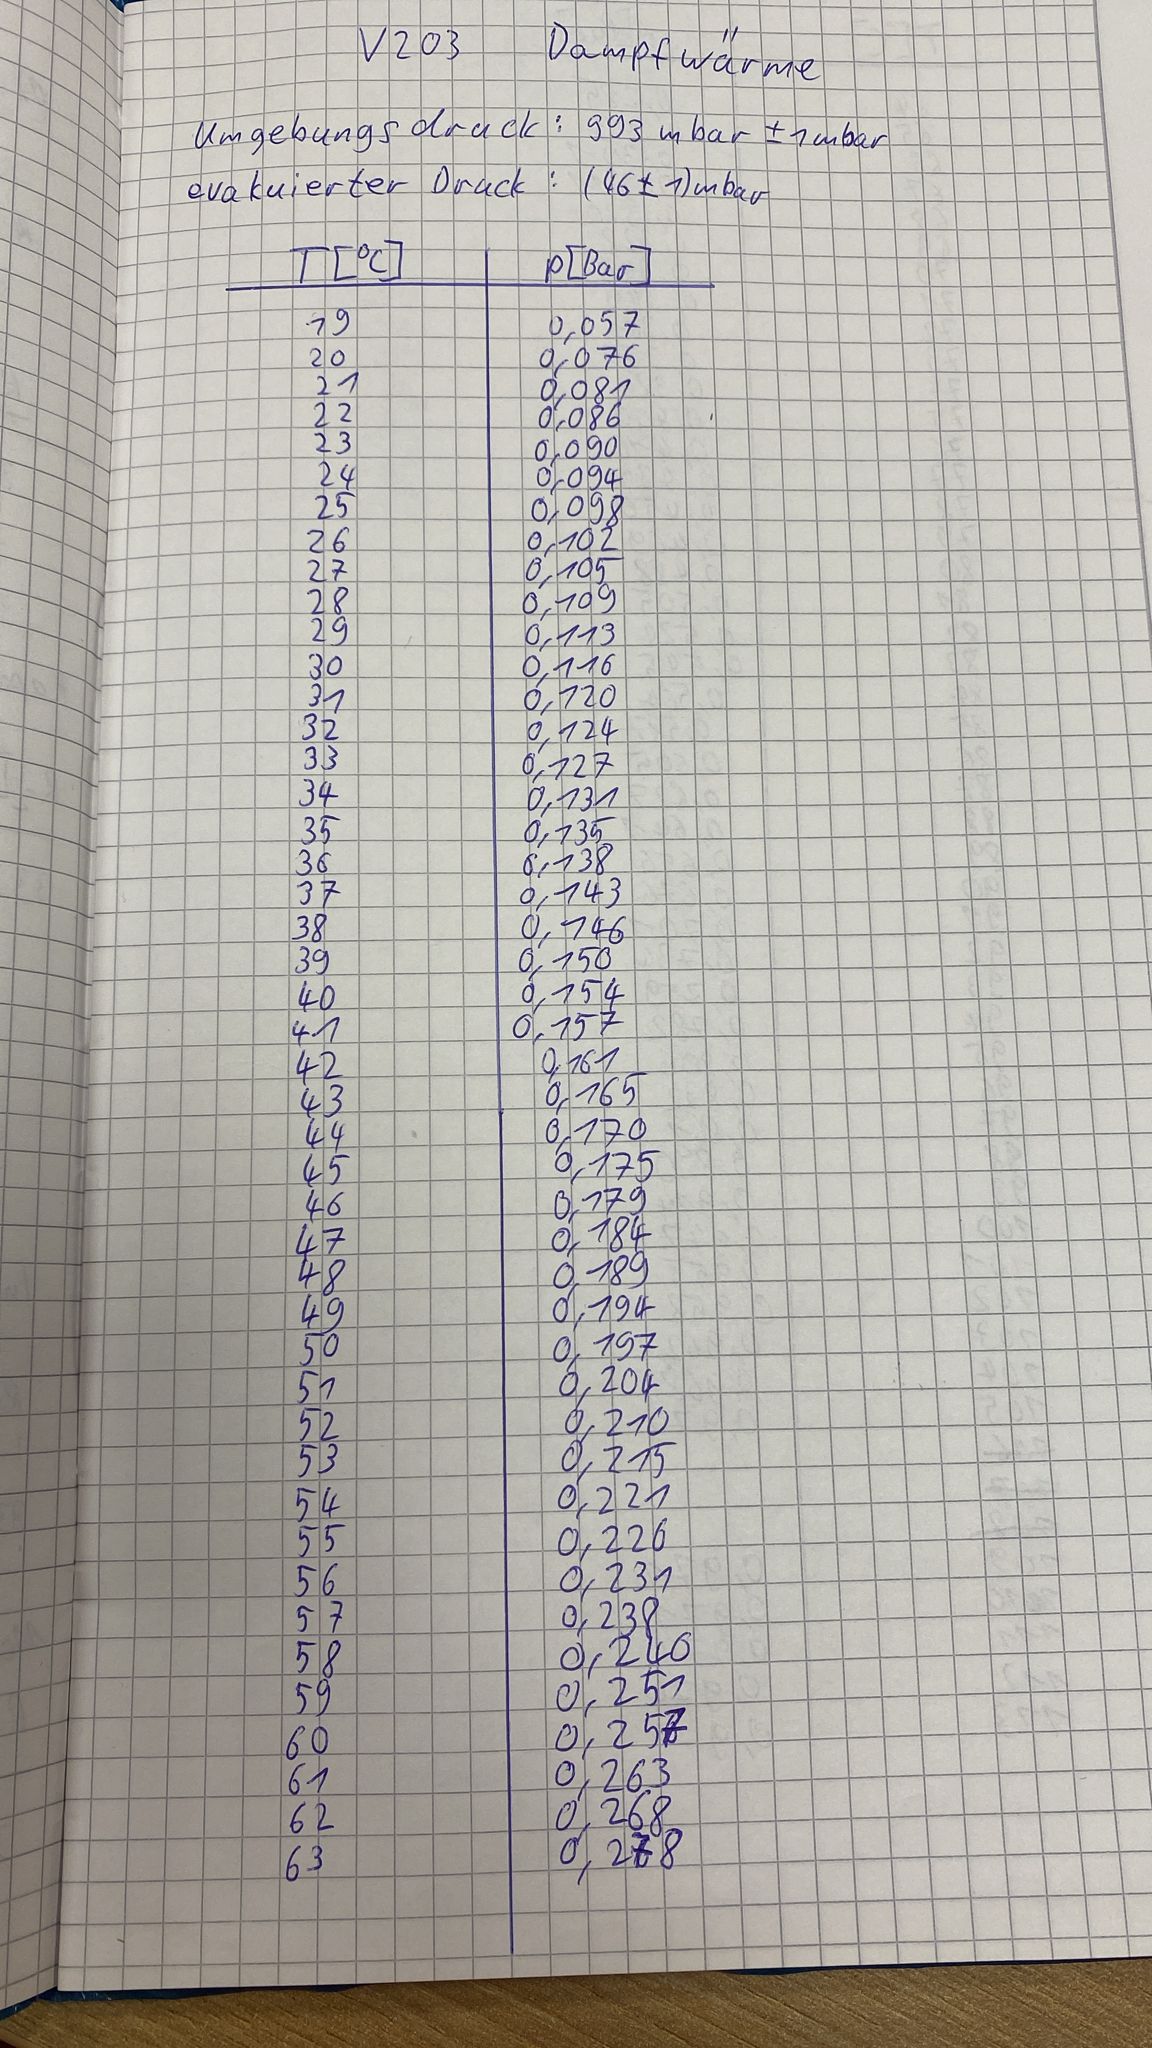 V203 Dampfwärme
Umgebungsdruck: 993 mbar ± 1mbar
evakuierter Druck: (46 ± 1)mbar
T[°C] p[Bar]
19 0,057
20 0,076
21 0,081
22 0,086
23 0,090
24 0,094
25 0,098
26 0,102
27 0,105
28 0,109
29 0,113
30 0,116
31 0,120
32 0,124
33 0,127
34 0,131
35 0,135
36 0,138
37 0,143
38 0,146
39 0,150
40 0,154
41 0,157
42 0,161
43 0,165
44 0,170
45 0,175
46 0,179
47 0,184
48 0,189
49 0,194
50 0,197
51 0,204
52 0,210
53 0,215
54 0,221
55 0,226
56 0,231
57 0,238
58 0,246
59 0,251
60 0,257
61 0,263
62 0,268
63